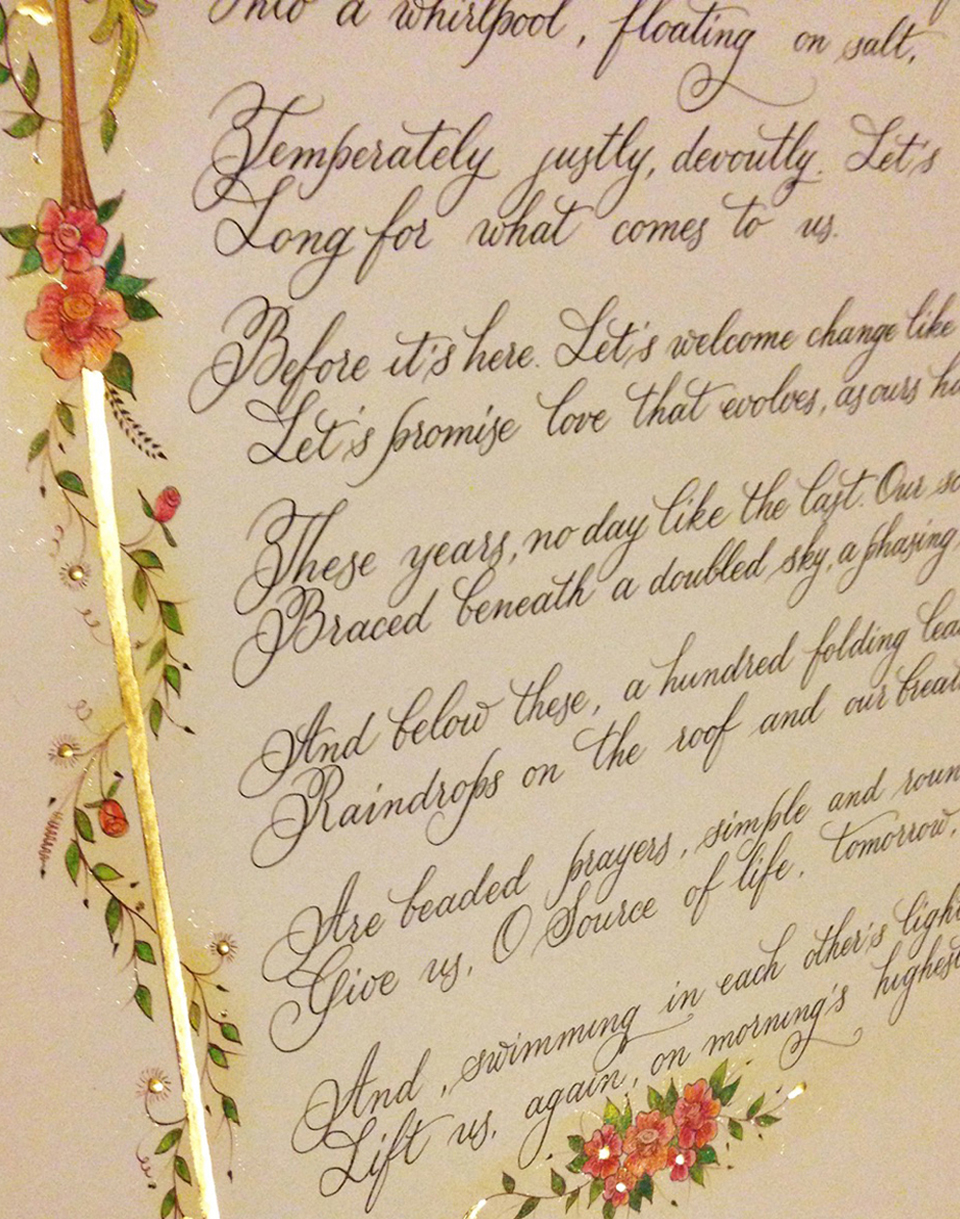 Into a whirlpool, floating on salt,
Temperately justly, devoutly. Let's
Long for what comes to us.
Before it's here. Let's welcome change like
Let's promise love that evolves, as ours
These years, no day like the last. Our
Braced beneath a doubled sky, a phasing
And below these, a hundred folding
Raindrops on the roof and our
Are beaded prayers, simple and
Give us, O Source of life, tomorrow,
And, swimming in each other's
Lift us, again, on morning's